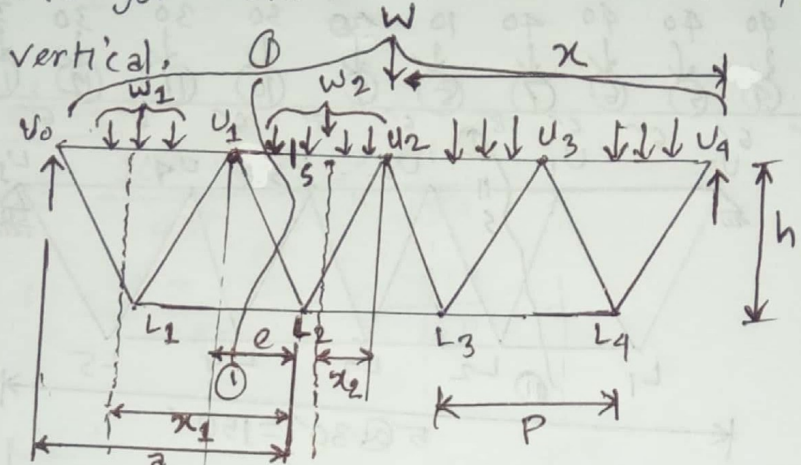 W
vertical. ① x
W1 W2
U0 U1 U2 U3 U4
s
h
L1 L2 L3 L4
e
① x2
x1 P
a